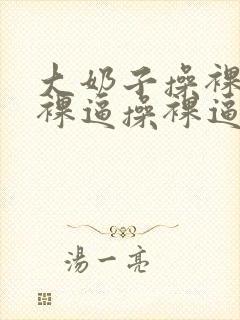 大奶子操裸
裸逼操裸逼
湯一亮